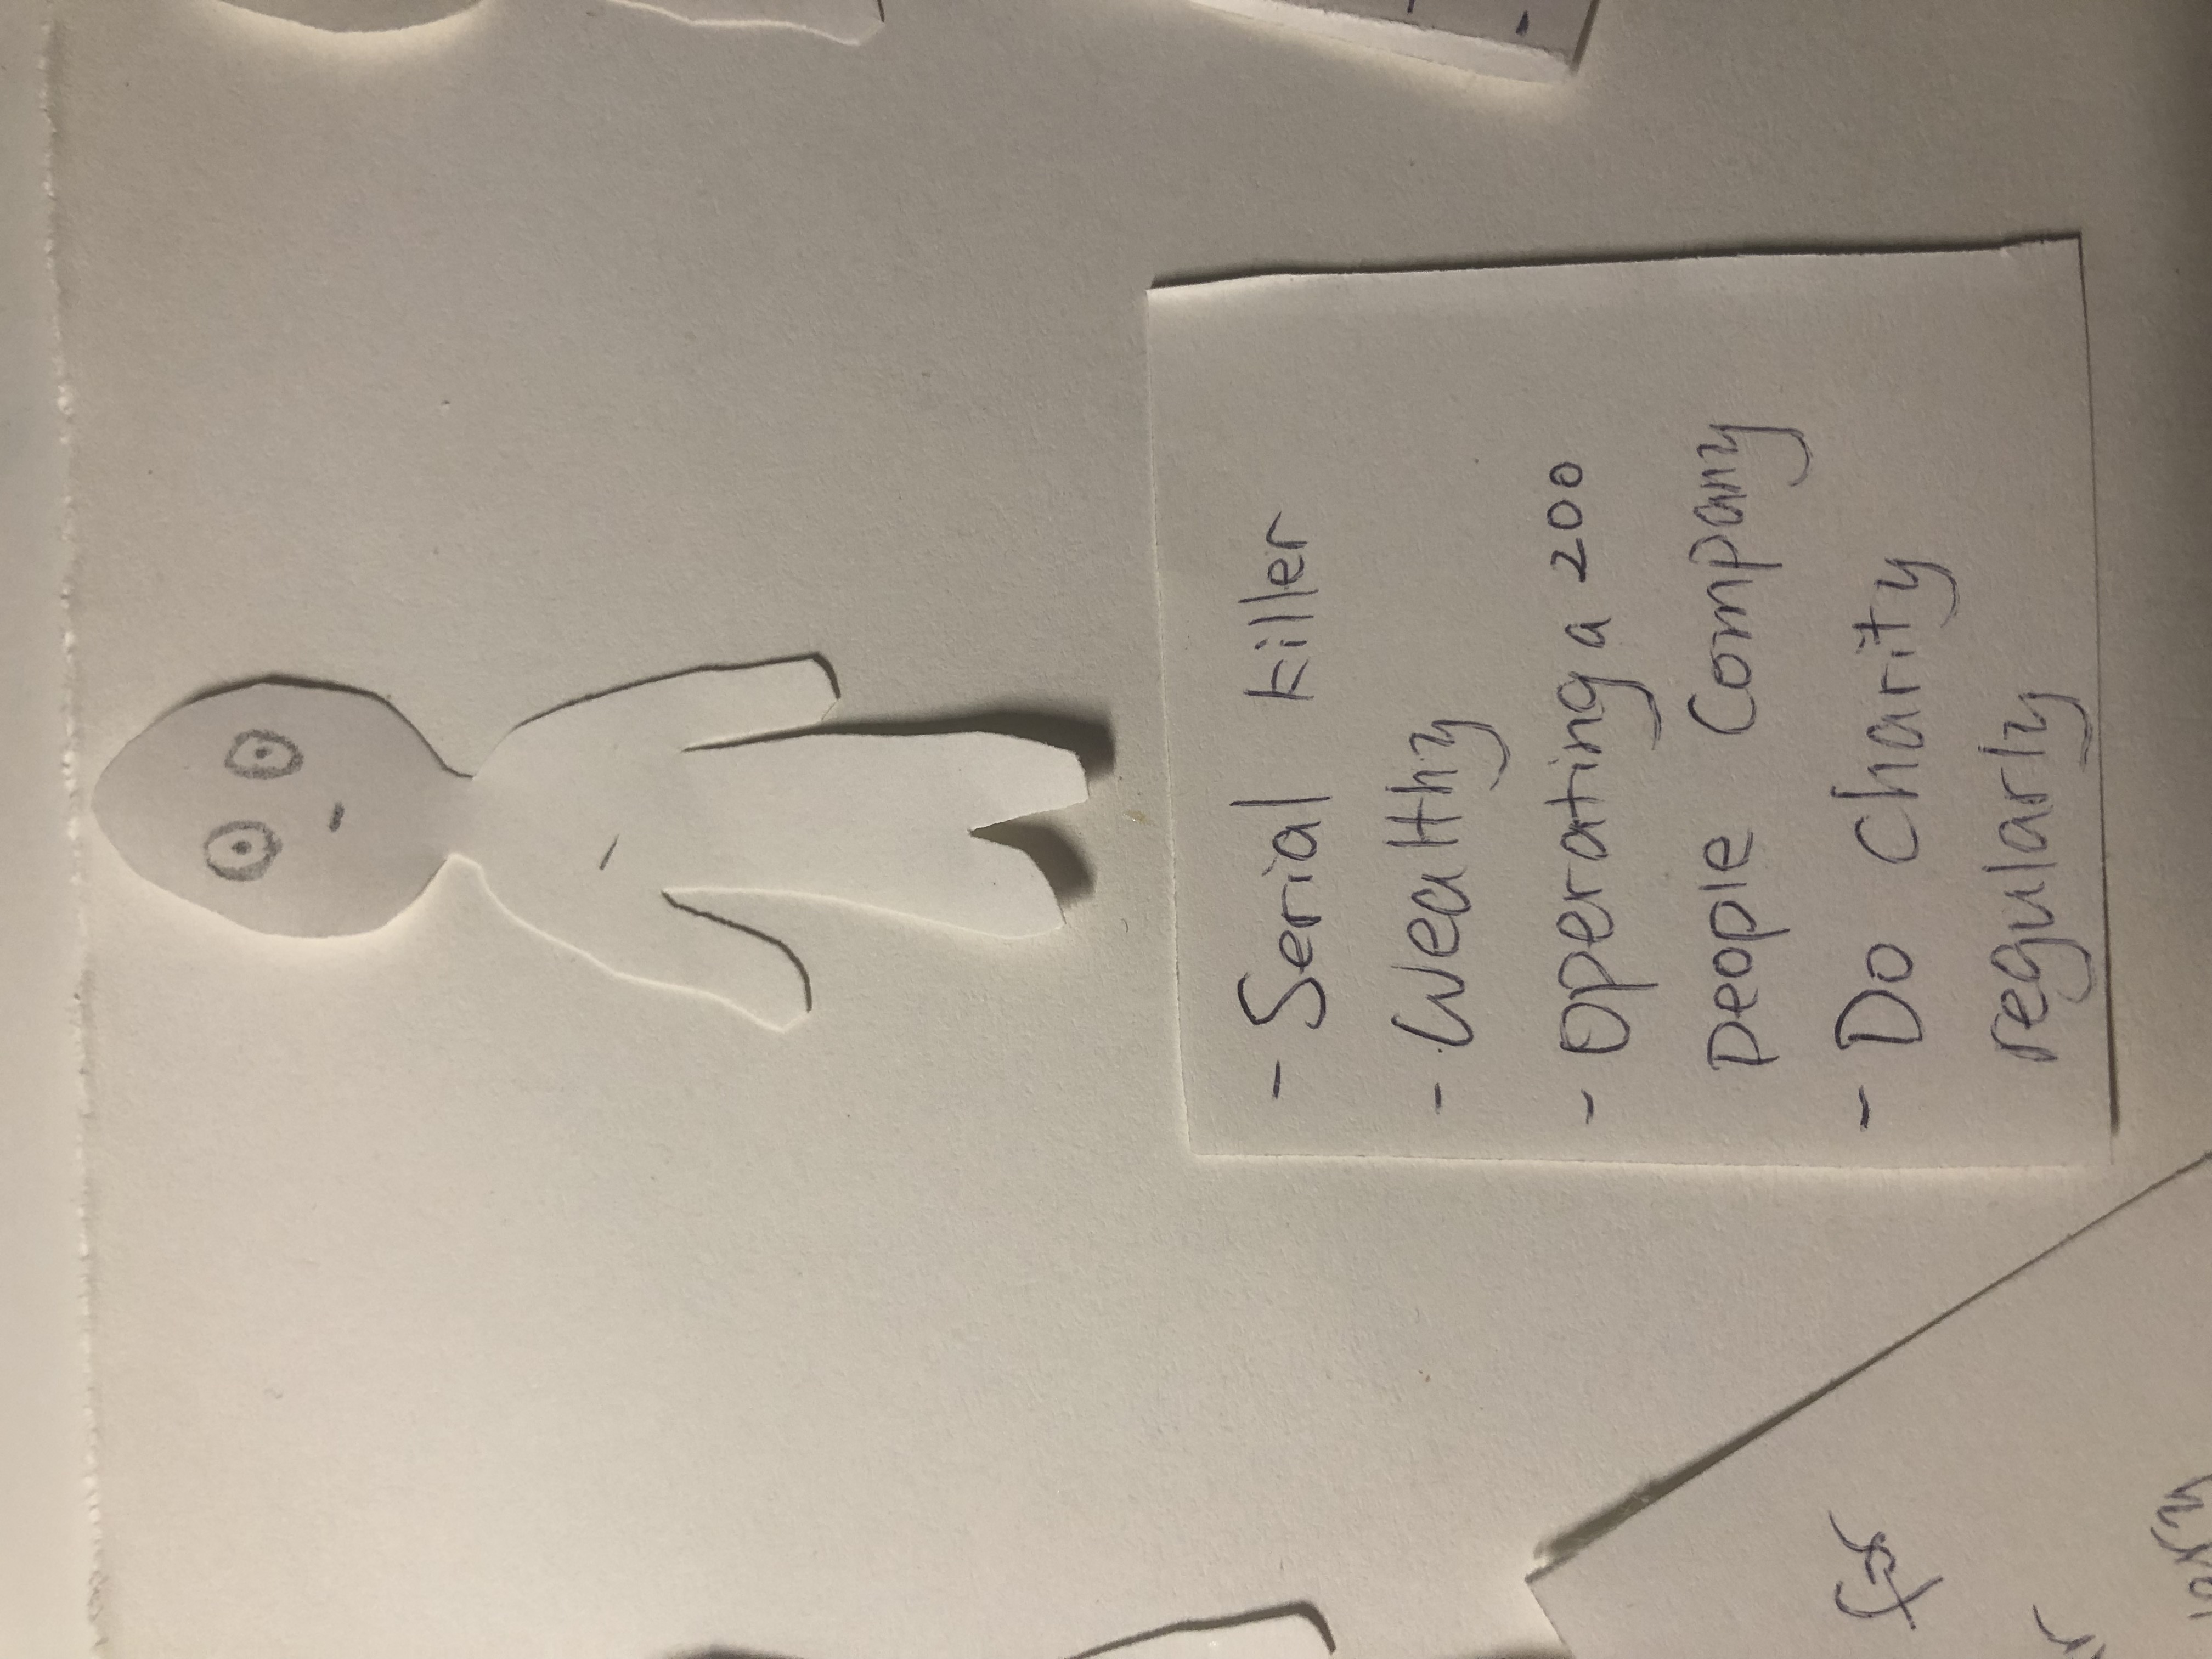 - Serial killer
- Wealthy
- Operating a 200
people Company
- Do charity
regularly
for